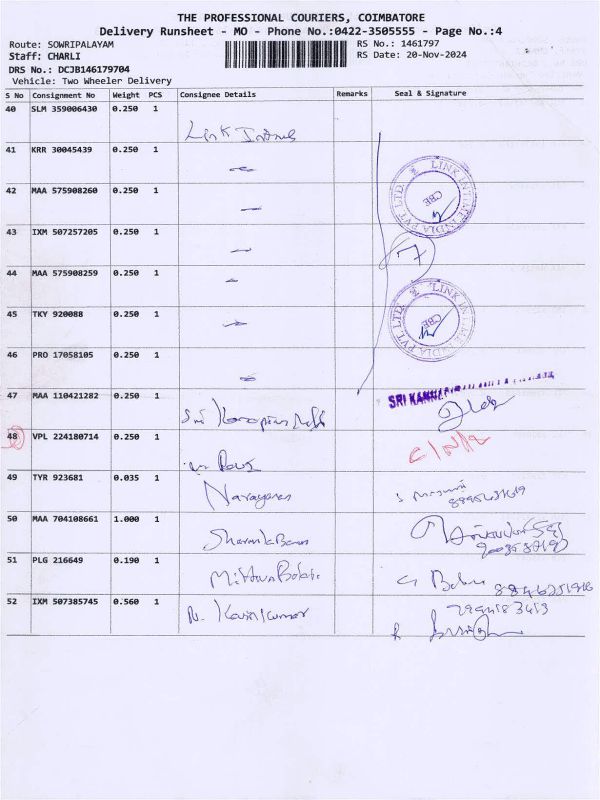 THE PROFESSIONAL COURIERS, COIMBATORE
Delivery Runsheet - MO - Phone No.:0422-3505555 - Page No.:4
Route: SOWRIPALAYAM
RS No.: 1461797
Staff: CHARLI
RS Date: 20-Nov-2024
DRS No.: DCJB146179704
Vehicle: Two Wheeler Delivery
S No Consignment No Weight PCS Consignee Details Remarks Seal & Signature
40 SLM 359006430 0.250 1
Link
41 KRR 30045439 0.250 1
42 MAA 575908260 0.250 1
43 IXM 507257205 0.250 1
44 MAA 575908259 0.250 1
45 TKY 920088 0.250 1
46 PRO 17058105 0.250 1
LINK INTIME INDIA PVT LTD
CBE
7
LINK INTIME INDIA PVT LTD
CBE
47 MAA 110421282 0.250 1
SRI
48 VPL 224180714 0.250 1
49 TYR 923681 0.035 1
Narayanan
50 MAA 704108661 1.000 1
51 PLG 216649 0.190 1
52 IXM 507385745 0.560 1
N. Kavinkumar